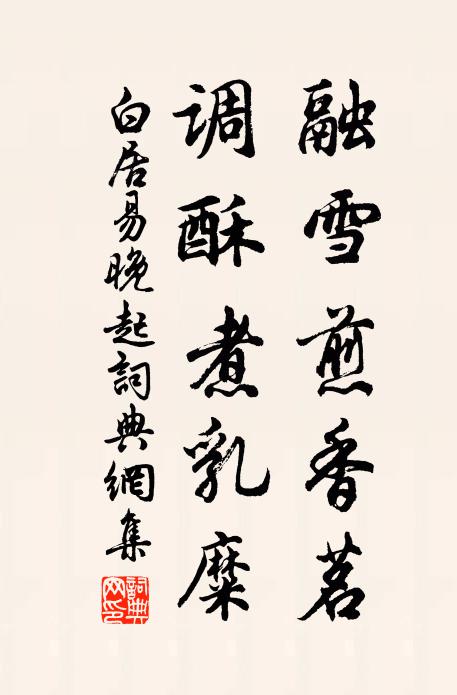 融雪煎香茗
调酥煮乳糜
白居易晚起詞典網集
詞典网印